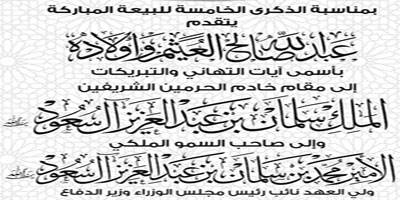 بمناسبة الذكرى الخامسة للبيعة المباركة
يتقدم
عبدالله صالح العثيم وأولاده
بأسمى آيات التهاني والتبريكات
إلى مقام خادم الحرمين الشريفين
الملك سلمان بن عبدالعزيز آل سعود
وإلى صاحب السمو الملكي
الأمير محمد بن سلمان بن عبدالعزيز آل سعود
ولي العهد نائب رئيس مجلس الوزراء وزير الدفاع